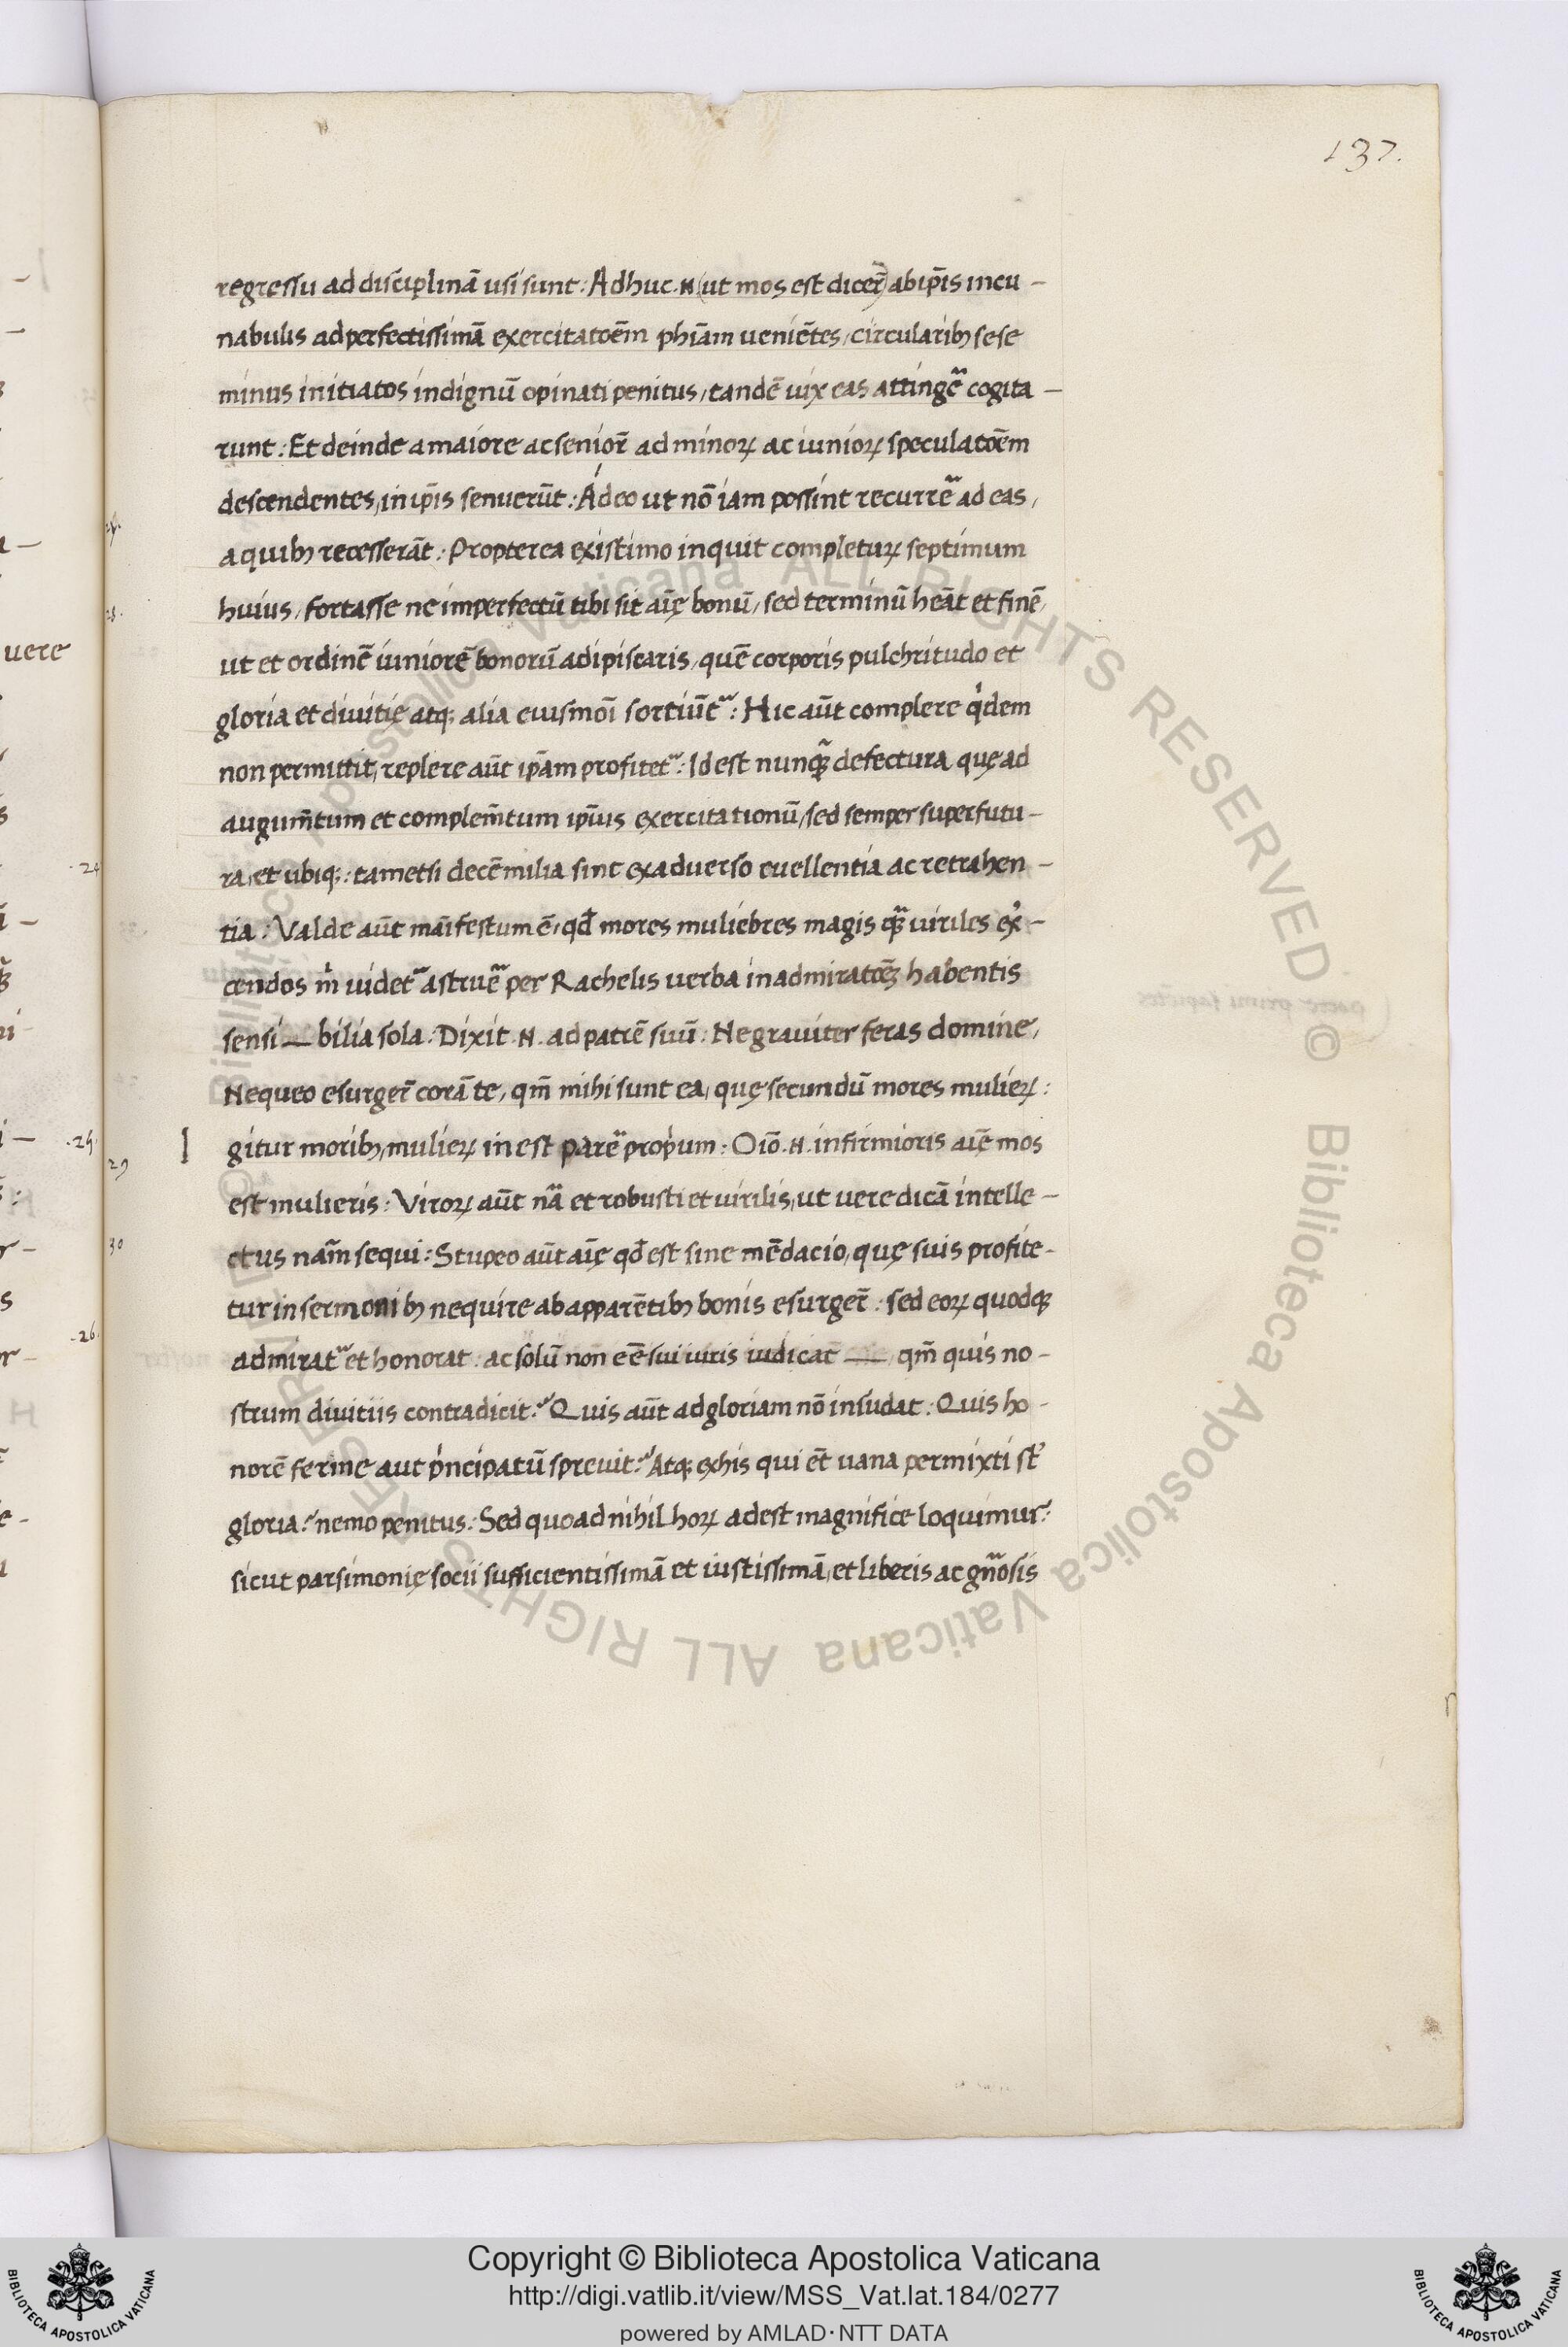 137.
regressu ad disciplinā usi sunt: Adhuc .N. (ut mos est dicer̃) ab ip̄is incu-
nabulis ad perfectissimā exercitatōem phīam veniētes, circularib₃ sese
minus initiatos indignū opinati penitus, tandē uix eas attingẽ cogita-
runt: Et deinde a maiore ac senior̃ ad minoꝝ ac iunioꝝ speculatōem
descendentes, in ip̄is senuerūt: Adeo ut nō iam possint recurrẽ ad eas,
a quib₃ recesserāt: Propterea existimo inquit completuꝝ septimum
huius, fortasse ne imperfectū tibi sit aīę bonū, sed terminū heāt et finē,
ut et ordinē iuniorē bonorū adipiscaris, quē corporis pulchritudo et
gloria et divitię atq; alia eiusmōi sortiūt̃: Hic aūt complere q'dem
non permittit, replere aūt ip̄am profitet̃: Id est nunq̃ defectura quę ad
augum̄tum et complem̄tum ip̄ius exercitationū, sed semper superfutu-
ra, et ubiq;: tametsi decē milia sint ex adverso evellentia ac retrahen-
tia: Valde aūt māifestum ē, qđ mores muliebres magis q̃ viriles ex̓-
cendos m̍ videt̃ astruẽ per Rachelis verba in admiratōe habentis
sensi— bilia sola: Dixit .N. ad patrē suū: Ne graviter feras domine,
Nequeo esurger̃ corā te, qm̄ mihi sunt ea, quę secundū mores mulieꝝ:
I gitur morib₃, mulieꝝ inest parẽ prop̍um: Oīō .N. infirmioris aīę mos
est mulieris: Viroꝝ aūt nã et robusti et virilis, ut vere dicā intelle-
ctus nãm sequi: Stupeo aūt aīę qđ est sine mēdacio, quę suis profite-
tur in sermonib₃ nequire ab apparētib₃ bonis esurger̃: sed eoꝝ quodq;
admirat̃ et honorat: ac solū non eē sui iuris iudicat — qm̄ quis no-
strum divitiis contradicit? Quis aūt ad gloriam nō insudat: Quis ho-
norē ferme aut p̍ncipatū sprevit? Atq; ex his qui ēt vana permixti st̄
gloria? nemo penitus: Sed quoad nihil hoꝝ adest magnifice loquimur:
sicut parsimonię socii sufficientissimā et iustissimā, et liberis ac gñosis
29
30
vere
.24
.25.
.26.
© Biblioteca Apostolica Vaticana ALL RIGHTS RESERVED © Biblioteca Apostolica Vaticana ALL RIGHTS RESERVED
BIBLIOTECA APOSTOLICA VATICANA
Copyright © Biblioteca Apostolica Vaticana
http://digi.vatlib.it/view/MSS_Vat.lat.184/0277
powered by AMLAD·NTT DATA
BIBLIOTECA APOSTOLICA VATICANA